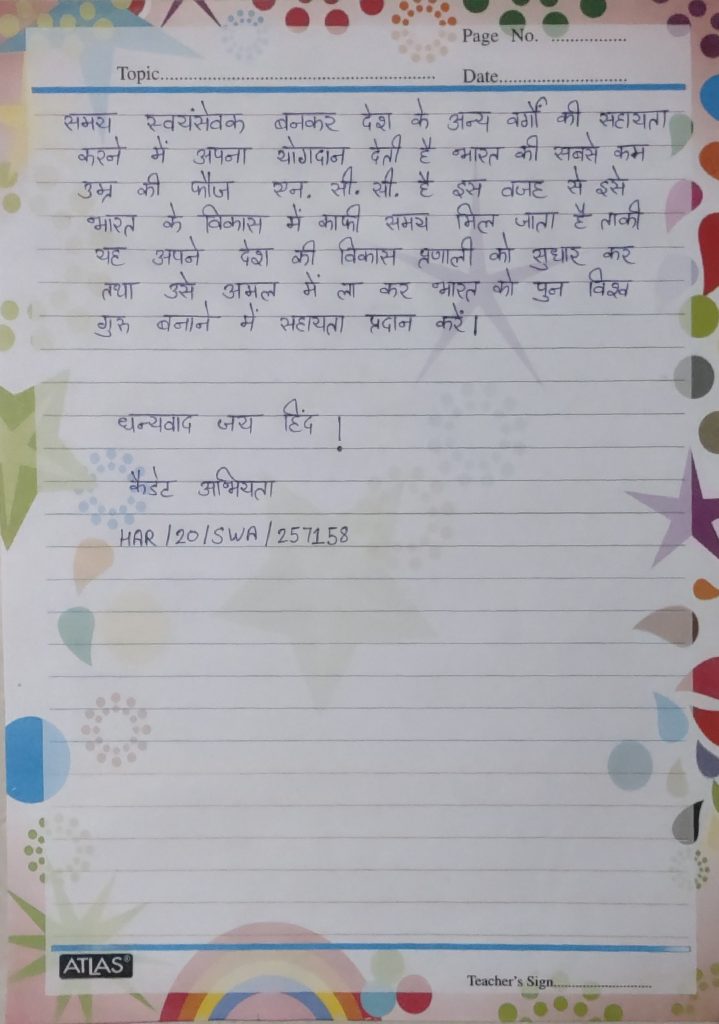 Page No. ................
Topic................................................................ Date..............................
समय स्वयंसेवक बनकर देश के अन्य वर्गों की सहायता
करने में अपना योगदान देती है भारत की सबसे कम
उम्र की फौज एन. सी. सी. है इस वजह से इसे
भारत के विकास में काफी समय मिल जाता है ताकी
यह अपने देश की विकास प्रणाली को सुधार कर
तथा उसे अमल में ला कर भारत को पुन विश्व
गुरु बनाने में सहायता प्रदान करें।
धन्यवाद जय हिंद !
कैडेट अभियता
HAR/20/SWA/257158
ATLAS®
Teacher's Sign........................